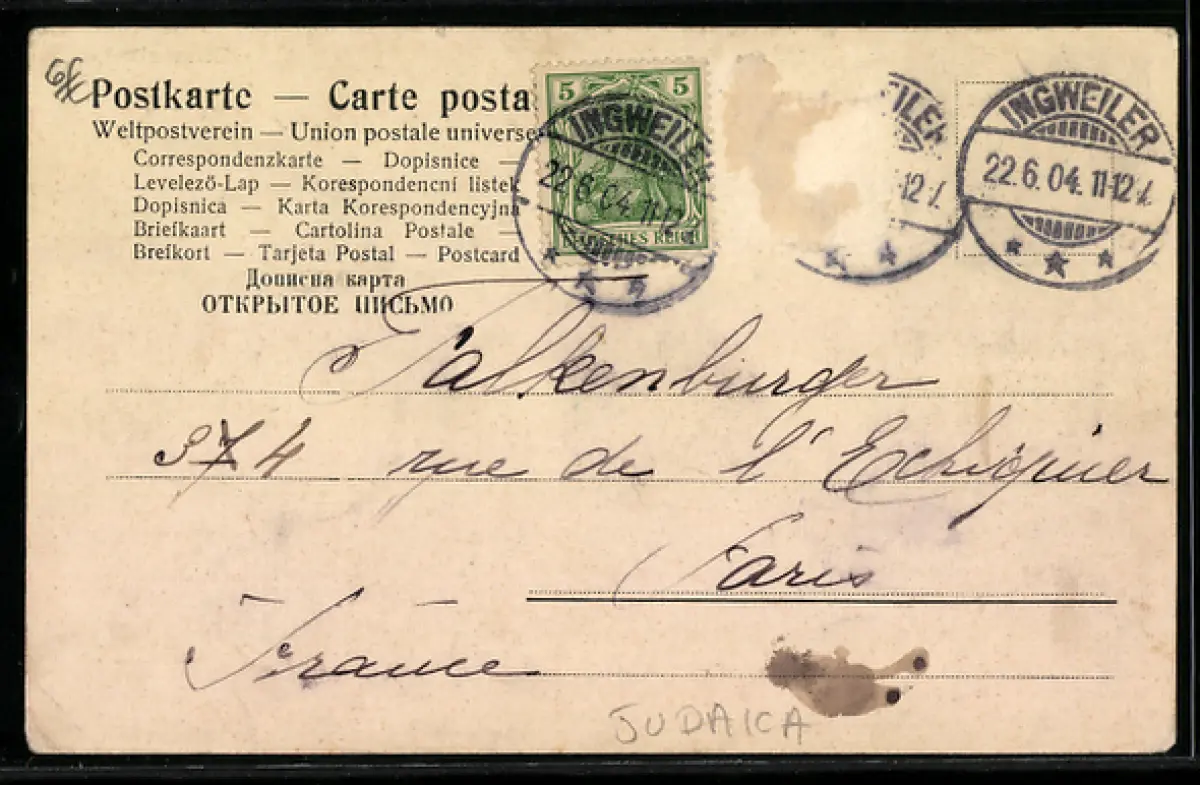 Postkarte — Carte posta
Weltpostverein — Union postale universe
Correspondenzkarte — Dopisnice —
Levelező-Lap — Korespondencní listek
Dopisnica — Karta Korespondencyjna
Briefkaart — Cartolina Postale —
Brefkort — Tarjeta Postal — Postcard
Дописна карта
ОТКРЫТОЕ ПИСЬМО
5 5
DEUTSCHES REICH
INGWEILER
22.6.04. 11-12
EILER
12
INGWEILER
22.6.04. 11-12
Falkenburger
374 rue de l'Echiquier
Paris
France
JUDAICA